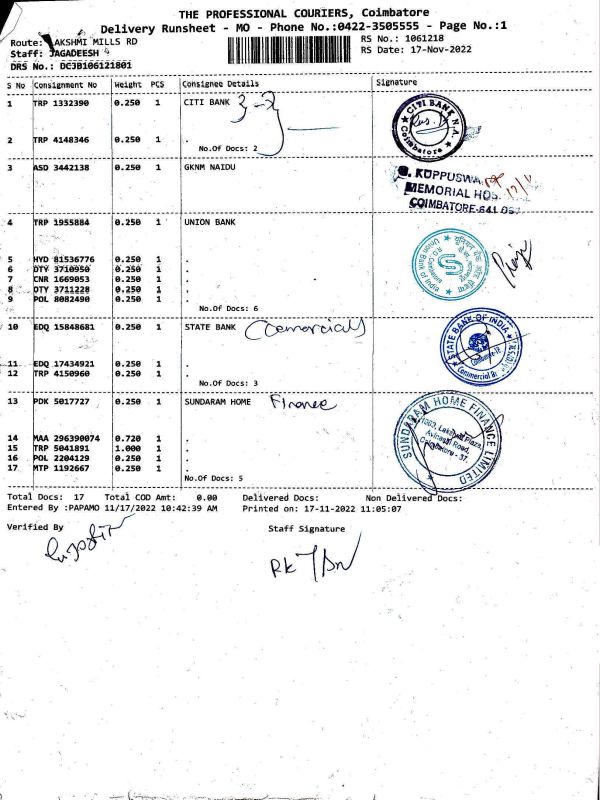 THE PROFESSIONAL COURIERS, Coimbatore
Delivery Runsheet - MO - Phone No.:0422-3505555 - Page No.:1
Route: LAKSHMI MILLS RD
RS No.: 1061218
Staff: JAGADEESH 4
RS Date: 17-Nov-2022
DRS No.: DC3B106121801
S No Consignment No Weight PCS Consignee Details Signature
1 TRP 1332390 0.250 1 CITI BANK
CITI BANK N.A.
Coimbatore
2 TRP 4148346 0.250 1 .
No.Of Docs: 2
3 ASD 3442138 0.250 1 GKNM NAIDU
KUPPUSWA
MEMORIAL HOS
COIMBATORE-641 037
4 TRP 1955884 0.250 1 UNION BANK
5 HYD 81536776 0.250 1 .
6 DTY 3710950 0.250 1 .
7 CNR 1669053 0.250 1 .
8 DTY 3711228 0.250 1 .
9 POL 8082490 0.250 1 .
No.Of Docs: 6
10 EDQ 15848681 0.250 1 STATE BANK
STATE BANK OF INDIA
11 EDQ 17434921 0.250 1 .
Commercial Br.
12 TRP 4150960 0.250 1 .
No.Of Docs: 3
13 PDK 5017727 0.250 1 SUNDARAM HOME Finance
SUNDARAM HOME FINANCE LIMITED
Avinashi Road,
Coimbatore - 37.
14 MAA 296390074 0.720 1 .
15 TRP 5041891 1.000 1 .
16 POL 2204129 0.250 1 .
17 MTP 1192667 0.250 1 .
No.Of Docs: 5
Total Docs: 17 Total COD Amt: 0.00 Delivered Docs: Non Delivered Docs:
Entered By :PAPAMO 11/17/2022 10:42:39 AM Printed on: 17-11-2022 11:05:07
Verified By Staff Signature